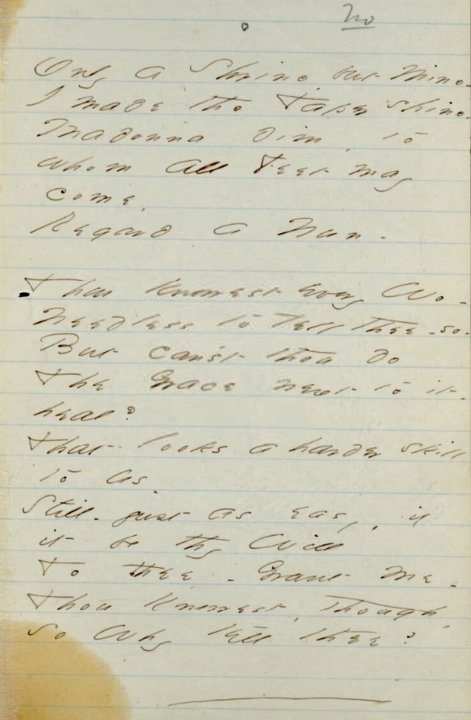 no
Only a Shrine, but Mine -
I made the Taper shine -
Madonna dim, to
whom all Feet may
come,
Regard a Nun -
Thou knowest every Wo -
Needless to tell thee - so -
But can'st thou do
the Grace next to it -
heal?
That - looks a harder skill
to us -
Still - just as easy, if
it be thy Will
To thee - Grant me -
Thou knowest, though,
so Why tell thee?